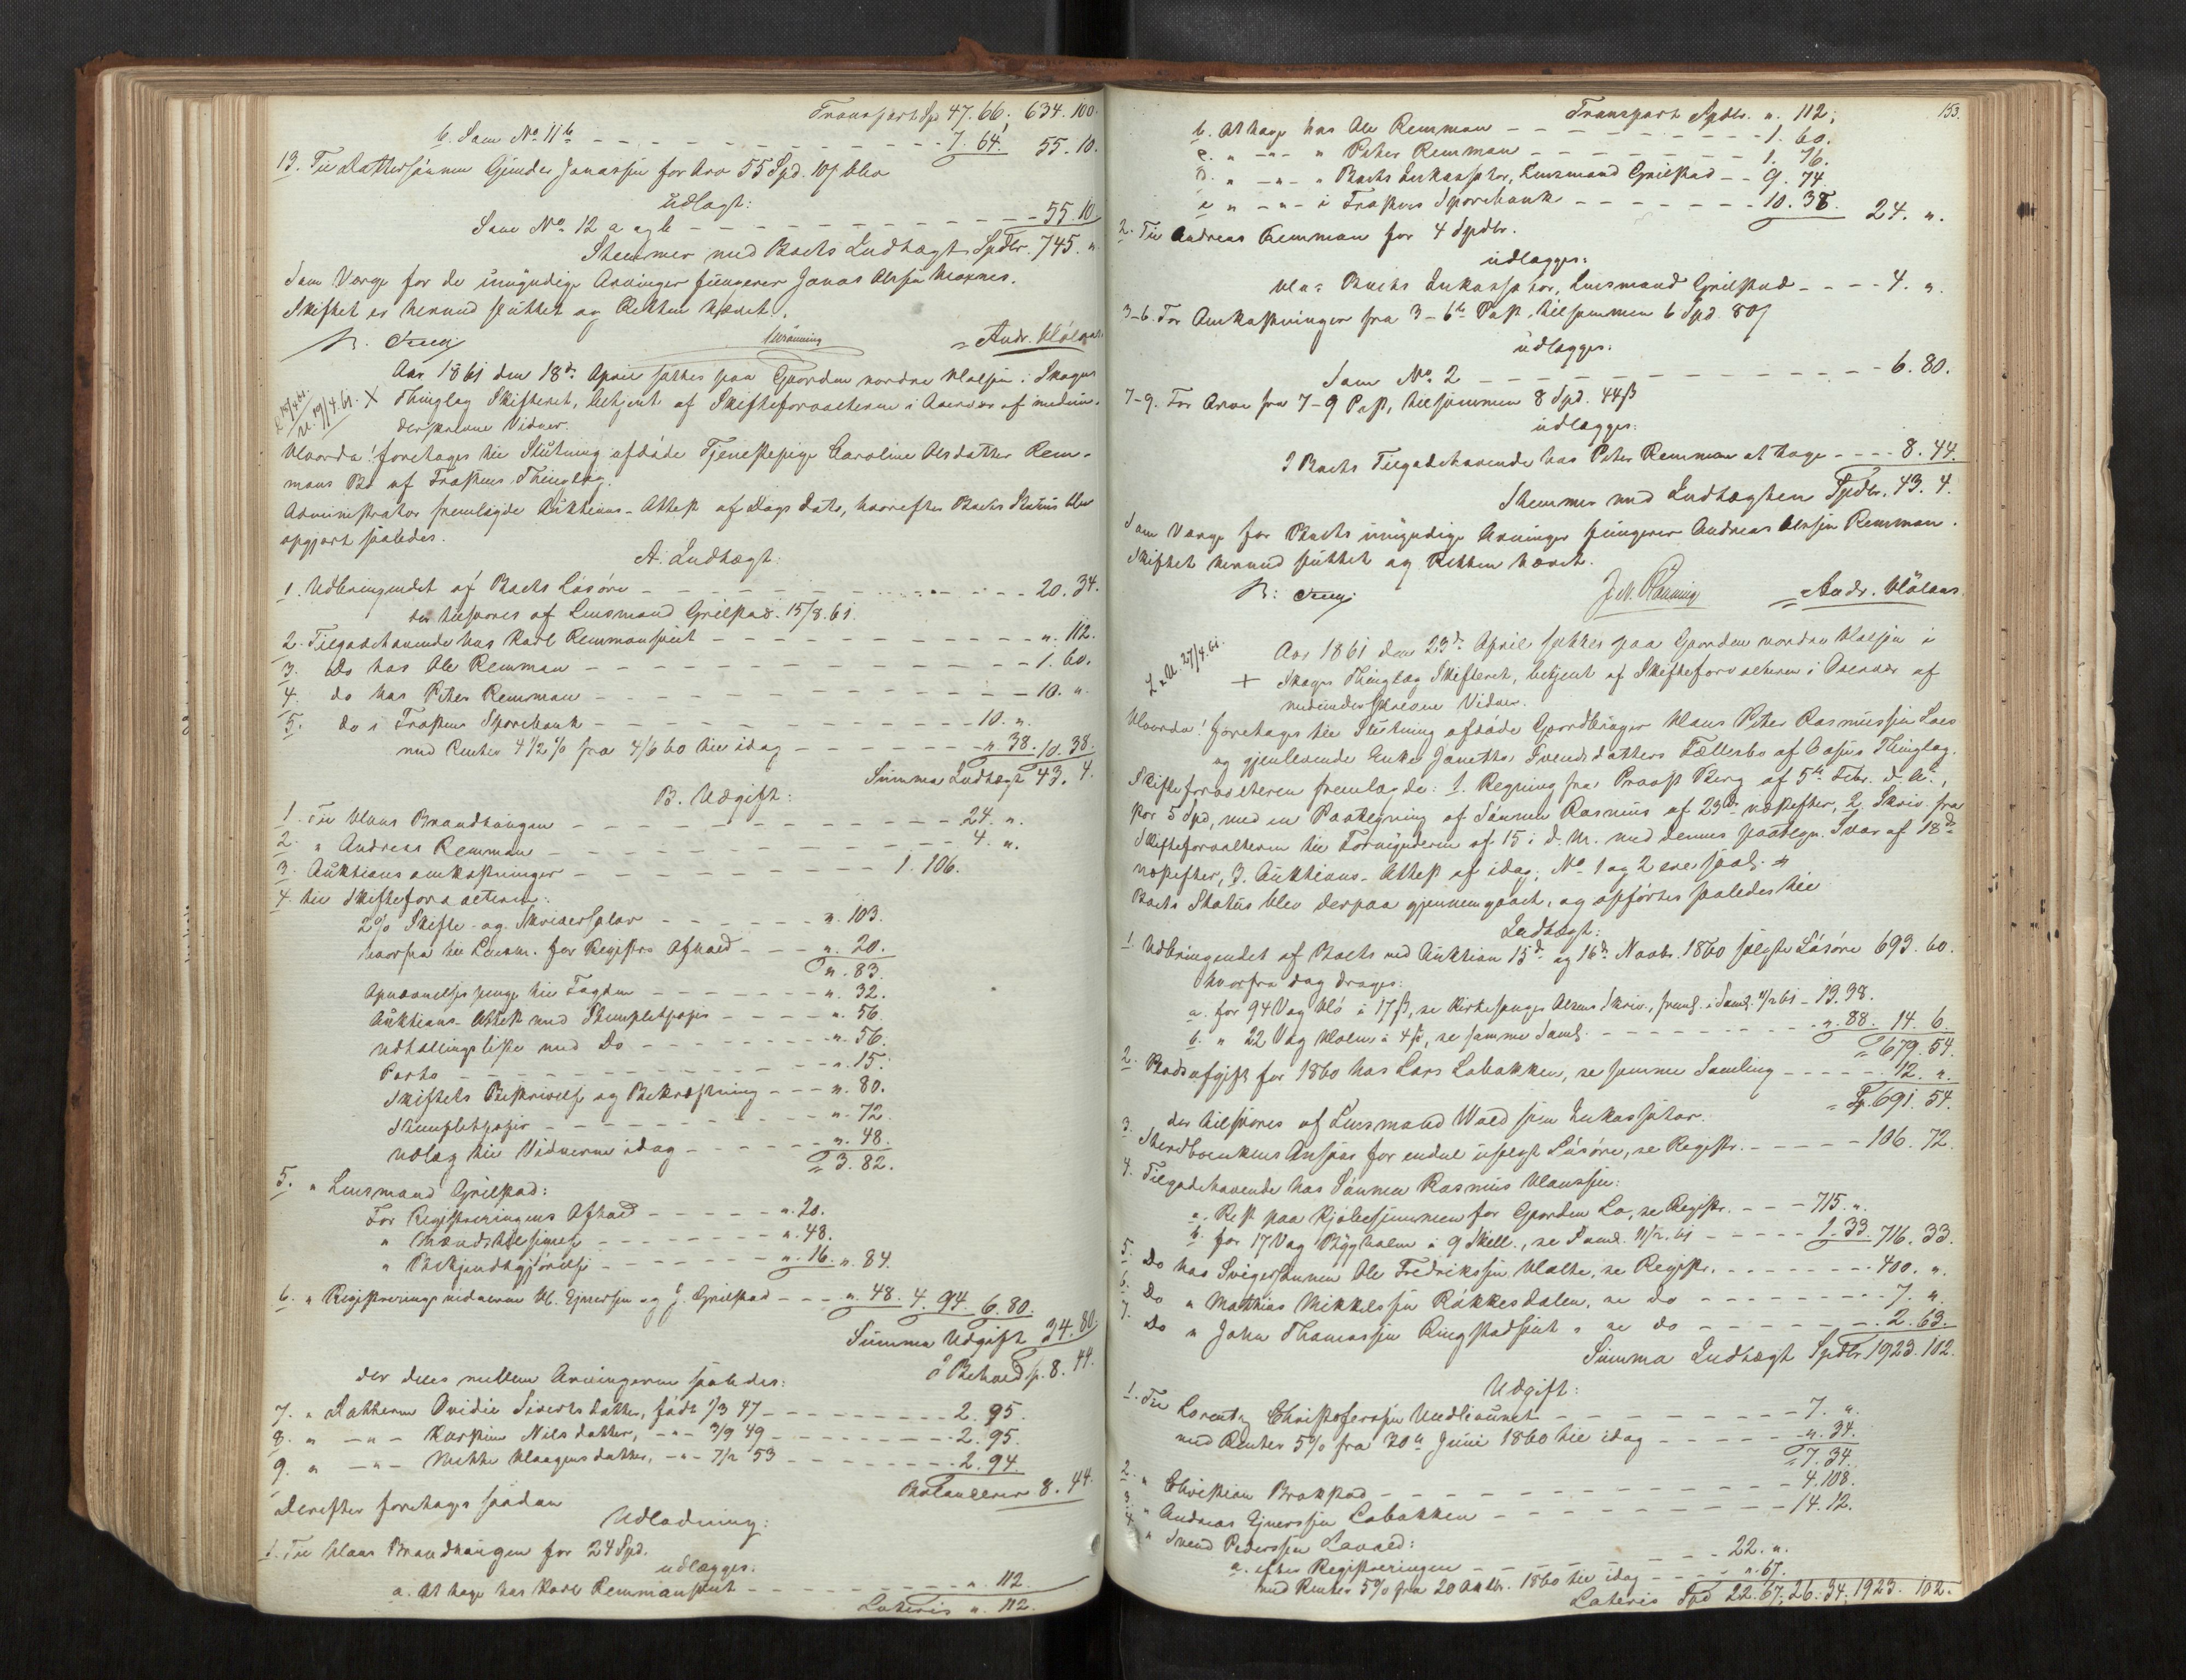 Transport Spd 47. 66; 634. 100.
b. Som No 11 b - - - 7. 64. 55. 10.
13. Til Dattersønnen Gunder Jonassen for Arv 55 Spd. 10 β blev
udlagt:
Som No 12 a og b - - - 55. 10
Stemmer med Boets Indtægt Spdlr. 745. "
Som Værge for de umyndige Arvinger fungerer Jonas Olsen Moxnes.
Skiftet er hermed sluttet og Retten hævet.
Andr. Hølaas
Aar 1861 den 18de April sattes paa Gaarden nordre Halsen i Skogns
Thinglag Skifteret, betjent af Skifteforvalteren i Overvær af nedenun-
derskrevne Vidner.
Hvorda! foretages til Slutning afdøde Tjenestepige Caroline Olsdatter Rem-
mans Bo af Frostens Thinglag.
Administrator fremlagde Auktions-Attest af Dags Dato, hvorefter Boets Status blev
opgjort saaledes.
A. Indtægt:
1. Udbringendet af Boets Løsøre - - - 20. 34.
der tilsvares af Lensmand Grilstad. 15/8. 61.
2. Tilgodehavende hos Karl Remmansveet - - - ". 112.
3. Do hos Ole Remman - - - 1. 60.
4. do hos Peter Remman - - - 10. "
5. do i Frostens Sparebank - - - 10. "
med Renter 4 1/2 % fra 4/6 60 til idag - - - ". 38. 10. 38.
Summa Indtægt 43. 4.
B. Udgift:
1. Til Claus Brandhaugen - - - 24. "
2. " Andreas Remman - - - 4. "
3. Auktionsomkostninger - - - 1. 106.
4. til Skifteforvalteren:
2% Skifte- og Skriversalær - - - ". 103.
hvorfra til Lensm. for Registrs Afhold - - - ". 20.
". 83.
- - - ". 32.
Auktions-Attest med Stempletpapir - - - ". 56.
Udtællingsliste med Do - - - ". 56.
Porto - - - ". 15.
Skiftets Beskrivelse og Bekræftning - - - ". 80.
Stempletpapir - - - ". 72
Udlæg til Vidnerne idag - - - ". 48.
3. 82.
5. " Lensmand Grilstad:
For Registreringens Afhold - - - ". 20.
" Mænds - - - ". 48.
" Bekjendtgjørelse - - - ". 16. ". 84.
6. " Registreringsvidnerne Ol. Ejnersen og J. Grilstad - - - ". 48. 4. 94. 6. 80.
Summa Udgift 34. 80.
I Behold p. 8. 44.
der deles mellem Arvingerne saaledes:
7. " Datteren Ovidie Sivertsdatter, født 1/3 47 - - - 2. 95.
8. " —"— Karstine Nilsdatter, —"— 3/9 49 - - - 2. 95.
9. " —"— Mette Haagensdatter, —"— 7/12 53 - - - 2. 94.
Balancerer 8. 44.
Derefter foretages saadan
Udlodning:
1. Til Claus Brandhaugen for 24 Spd.
udlægges:
a. At tage hos Karl Remmansveet - - - ". 112
Lateris ". 112.
153.
Transport Spdlr. ". 112;
b. At tage hos Ole Remman - - - 1. 60.
c. " —"— " Peter Remman - - - 1. 76.
d. " —"— " Boets Inkassator, Lensmand Grilstad - - 9. 74
e " —"— i Frostens Sparebank - - - 10. 38. 24. "
2. Til Andreas Remman for 4 Spdlr.
udlægges:
hos Boets Inkassator, Lensmand Grilstad - - - 4. "
3-6. For Omkostninger fra 3-6te Post, tilsammen 6 Spd. 80 β
udlægges:
Som No 2 - - - 6. 80.
7-9. For Arven fra 7-9 Post, tilsammen 8 Spd. 44 β
udlægges:
I Boets Tilgodehavende hos Peter Remman at tage - - - 8. 44.
Stemmer med Indtægten Spdlr. 43. 4.
Som Værge for Boets umyndige Arvinger fungerer Andreas Olssen Remman.
Skiftet hermed sluttet og Retten hævet.
Andr. Hølaas
Aar 1861 den 23de April sattes paa Gaarden nordre Halsen i
Skogns Thinglag Skifteret, betjent af Skifteforvalteren i Overvær af
nedenunderskrevne Vidner.
Hvorda! foretages til Slutning afdøde Gaardbruger Claus Peter Rasmussen Loes
og gjenlevende Enke Janetha Svendsdatters Fællesbo af Aasens Thinglag.
Skifteforvalteren fremlagde: 1. Regning fra Provst Berg af 5te Febr. d. A.,
stor 5 Spd, med en Paategning af Sønnen Rasmus af 23de næstefter, 2. Skriv. fra
Skifteforvalteren til Formynderen af 15 i d. M. med dennes paategn. Svar af 18de
næstefter, 3. Auktions-Attest af idag. No 1 og 2 ere saal.
Boets Status blev derpaa gjennemgaaet, og opførtes saaledes til
Indtægt:
1 Udbringendet af Boets ved Auktion 15de og 16de Novbr. 1860 solgte Løsøre 693. 60.
hvorfra dog drages:
a. for 94 Vog Hø à 17 β, se Kirkesanger Skriv., freml. i Saml. 11/2 61 - 13. 38.
b. " 22 Vog Halm à 4 β, se samme Saml. - - - ". 88. 14. 6.
679. 54.
2. Bordsafgift for 1860 hos Lars Lobakken, se samme Samling - - - 12. "
Sp. 691. 54.
der tilsvares af Lensmand Wold som Inkassator.
3. Stervboenkens Ansvar for endel usolgt Løsøre, se Registr. - - - 106. 72.
4. Tilgodehavende hos Sønnen Rasmus Claussen:
a. Rest paa Kjøbesummen for Gaarden Lo, se Registr. - - - 715. "
b. for 17 Vog Byghalm à 9 Skill., se Saml. 11/2. 61 - - - 1. 33. 716. 33.
5. Do hos Svigersønnen Ole Fredriksen Valle, se Registr. - - - 400. "
6. Do " Mathias Mikkelsen Røkkesdalen, se do - - - 7. "
7. Do " John Thomassen Ringstadsveet, se do - - - 2. 63.
Summa Indtægt Spdlr 1923. 102.
Udgift:
1. Til Lorents Christofersen - - - 7. "
med Renter 5% fra 20de Juni 1860 til idag - - - ". 34.
7. 34.
2. " Christian Brakstad - - - 4. 108.
3. " Andreas Ejnerssen Lobakken - - - 14. 12.
4. " Svend Pederssen :
a. efter Registreringen - - - 22. "
med Renter 5% fra 20 Octbr. 1860 til idag - - - ". 67.
Lateris Spd 22. 67; 26. 34; 1923. 102.